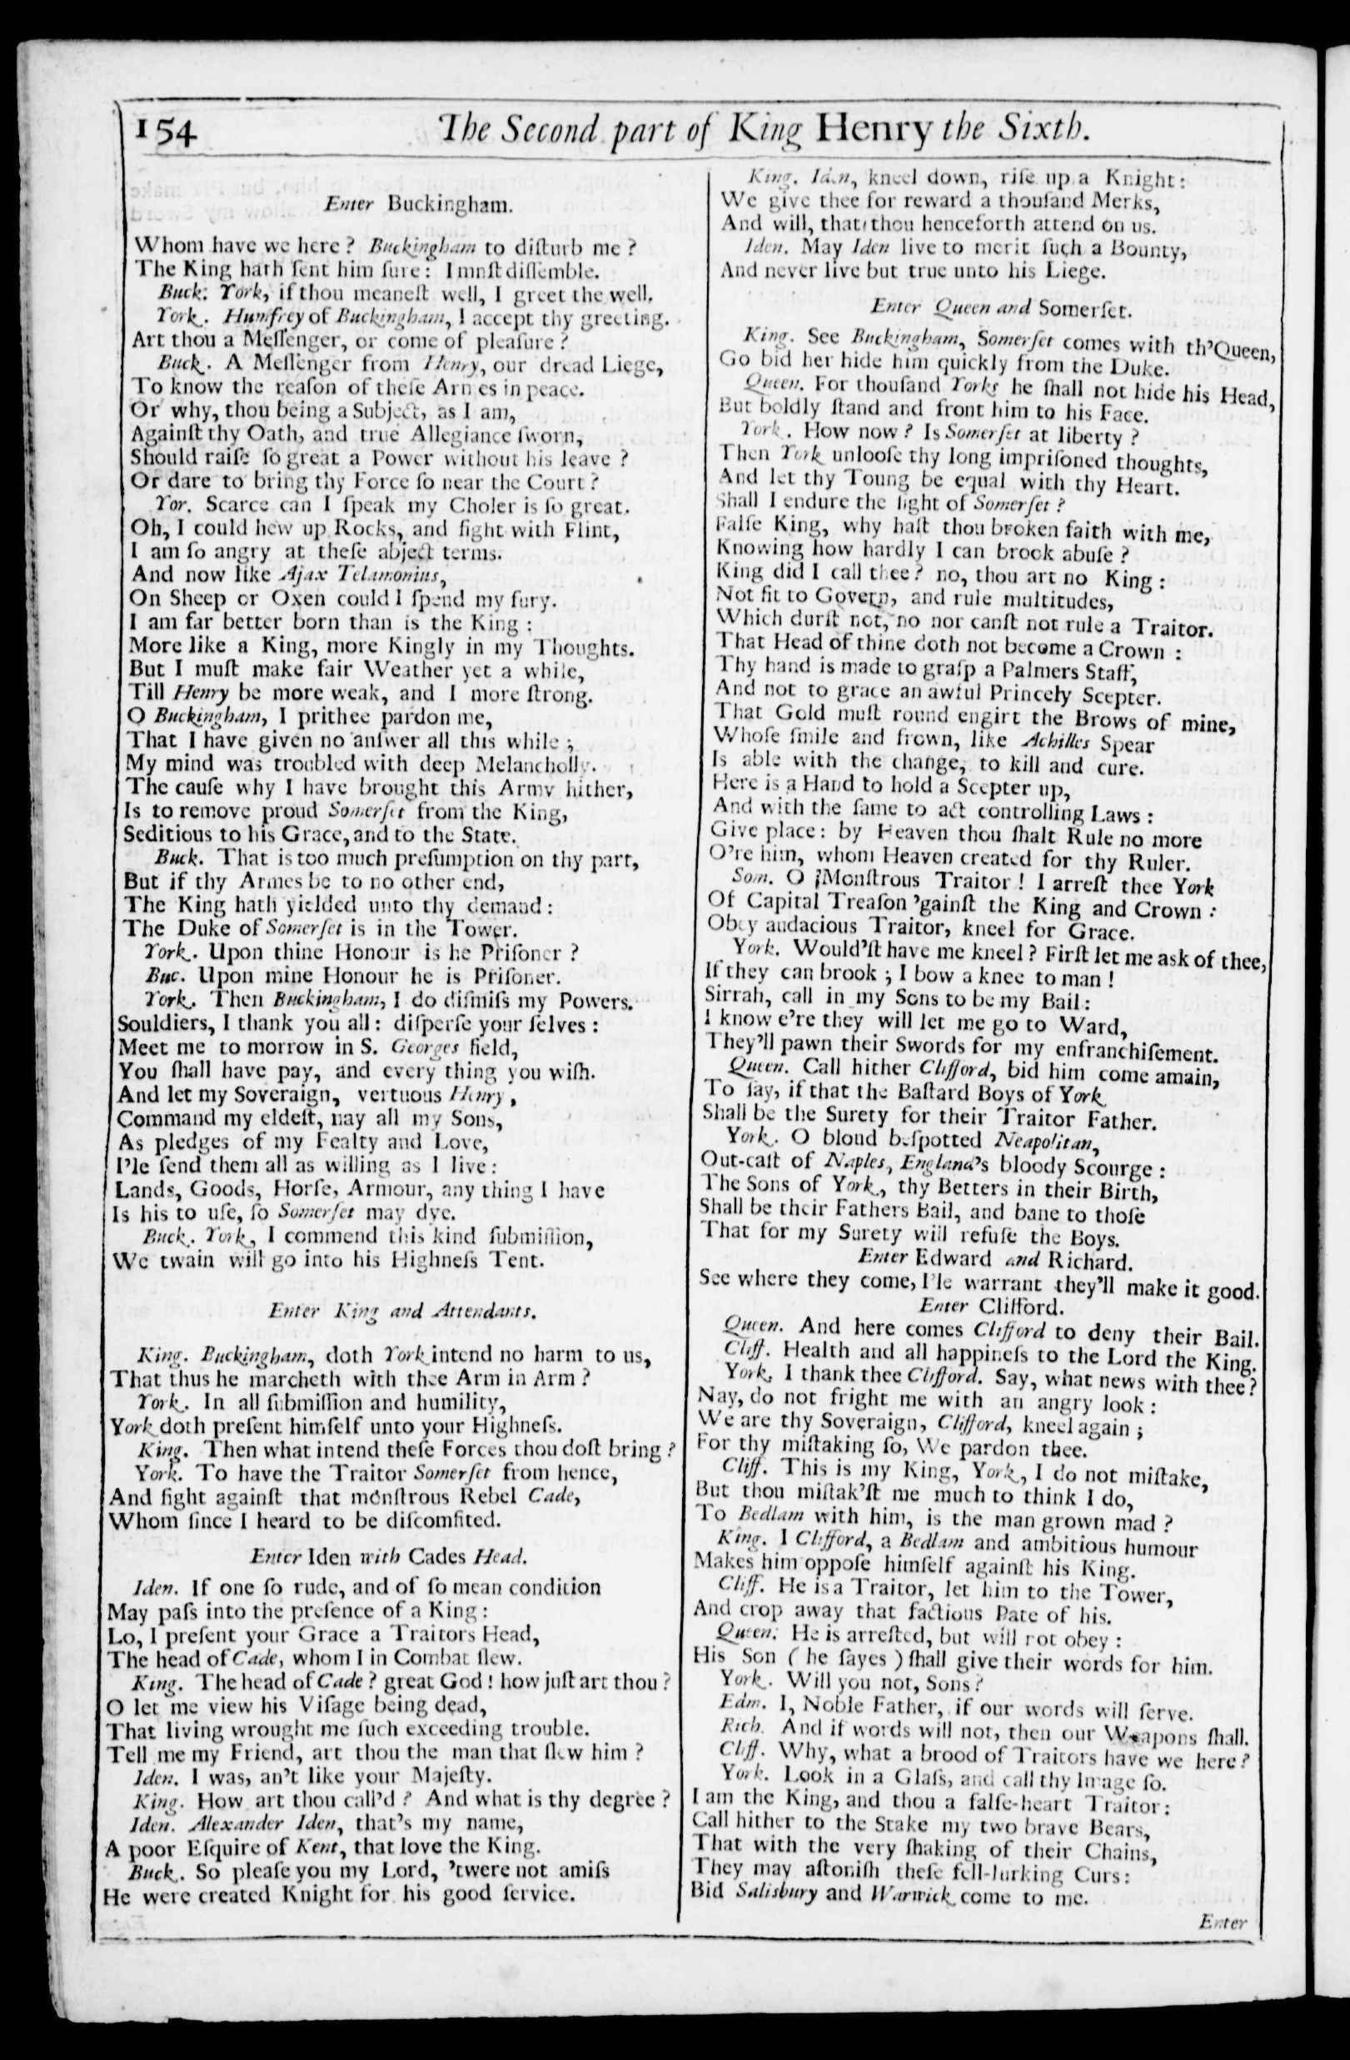 154
The Second part of King Henry the Sixth.
Enter Buckingham.
Whom have we here ? Buckingham to diſturb me ?
The King hath ſent him ſure : I mnſt diſſemble.
Buck. York, if thou meaneſt well, I greet the well.
York. Humfrey of Buckingham, I accept thy greeting.
Art thou a Meſſenger, or come of pleaſure ?
Buck. A Meſſenger from Henry, our dread Liege,
To know the reaſon of theſe Armes in peace.
Or why, thou being a Subject, as I am,
Againſt thy Oath, and true Allegiance ſworn,
Should raiſe ſo great a Power without his leave ?
Or dare to bring thy Force ſo near the Court ?
Yor. Scarce can I ſpeak my Choler is ſo great.
Oh, I could hew up Rocks, and fight with Flint,
I am ſo angry at theſe abject terms.
And now like Ajax Telamonius,
On Sheep or Oxen could I ſpend my fury.
I am far better born than is the King :
More like a King, more Kingly in my Thoughts.
But I muſt make fair Weather yet a while,
Till Henry be more weak, and I more ſtrong.
O Buckingham, I prithee pardon me,
That I have given no anſwer all this while ;
My mind was troubled with deep Melancholly.
The cauſe why I have brought this Army hither,
Is to remove proud Somerſet from the King,
Seditious to his Grace, and to the State.
Buck. That is too much preſumption on thy part,
But if thy Armes be to no other end,
The King hath yielded unto thy demand :
The Duke of Somerſet is in the Tower.
York. Upon thine Honour is he Priſoner ?
Buc. Upon mine Honour he is Priſoner.
York. Then Buckingham, I do diſmiſs my Powers.
Souldiers, I thank you all : diſperſe your ſelves :
Meet me to morrow in S. Georges field,
You ſhall have pay, and every thing you wiſh.
And let my Soveraign, vertuous Henry,
Command my eldeſt, nay all my Sons,
As pledges of my Fealty and Love,
I'le ſend them all as willing as I live :
Lands, Goods, Horſe, Armour, any thing I have
Is his to uſe, ſo Somerſet may dye.
Buck. York, I commend this kind ſubmiſſion,
We twain will go into his Highneſs Tent.
Enter King and Attendants.
King. Buckingham, doth York intend no harm to us,
That thus he marcheth with thee Arm in Arm ?
York. In all ſubmiſſion and humility,
York doth preſent himſelf unto your Highneſs.
King. Then what intend theſe Forces thou doſt bring ?
York. To have the Traitor Somerſet from hence,
And fight againſt that monſtrous Rebel Cade,
Whom ſince I heard to be diſcomfited.
Enter Iden with Cades Head.
Iden. If one ſo rude, and of ſo mean condition
May paſs into the preſence of a King :
Lo, I preſent your Grace a Traitors Head,
The head of Cade, whom I in Combat ſlew.
King. The head of Cade ? great God ! how juſt art thou ?
O let me view his Viſage being dead,
That living wrought me ſuch exceeding trouble.
Tell me my Friend, art thou the man that ſlew him ?
Iden. I was, an't like your Majeſty.
King. How art thou call'd ? And what is thy degree ?
Iden. Alexander Iden, that's my name,
A poor Eſquire of Kent, that love the King.
Buck. So pleaſe you my Lord, 'twere not amiſs
He were created Knight for his good ſervice.
King. Iden, kneel down, riſe up a Knight :
We give thee for reward a thouſand Merks,
And will, that thou henceforth attend on us.
Iden. May Iden live to merit ſuch a Bounty,
And never live but true unto his Liege.
Enter Queen and Somerſet.
King. See Buckingham, Somerſet comes with th'Queen,
Go bid her hide him quickly from the Duke.
Queen. For thouſand Yorks he ſhall not hide his Head,
But boldly ſtand and front him to his Face.
York. How now ? Is Somerſet at liberty ?
Then York unlooſe thy long impriſoned thoughts,
And let thy Toung be equal with thy Heart.
Shall I endure the ſight of Somerſet ?
Falſe King, why haſt thou broken faith with me,
Knowing how hardly I can brook abuſe ?
King did I call thee ? no, thou art no King :
Not fit to Govern, and rule multitudes,
Which durſt not, no nor canſt not rule a Traitor.
That Head of thine doth not become a Crown :
Thy hand is made to graſp a Palmers Staff,
And not to grace an awful Princely Scepter.
That Gold muſt round engirt the Brows of mine,
Whoſe ſmile and frown, like Achilles Spear
Is able with the change, to kill and cure.
Here is a Hand to hold a Scepter up,
And with the ſame to act controlling Laws :
Give place : by Heaven thou ſhalt Rule no more
O're him, whom Heaven created for thy Ruler.
Som. O ¡Monſtrous Traitor ! I arreſt thee York
Of Capital Treaſon 'gainſt the King and Crown :
Obey audacious Traitor, kneel for Grace.
York. Would'ſt have me kneel ? Firſt let me ask of thee,
If they can brook ; I bow a knee to man !
Sirrah, call in my Sons to be my Bail :
I know e're they will let me go to Ward,
They'll pawn their Swords for my enfranchiſement.
Queen. Call hither Clifford, bid him come amain,
To ſay, if that the Baſtard Boys of York
Shall be the Surety for their Traitor Father.
York. O bloud beſpotted Neapolitan,
Out-caſt of Naples, England's bloody Scourge :
The Sons of York, thy Betters in their Birth,
Shall be their Fathers Bail, and bane to thoſe
That for my Surety will refuſe the Boys.
Enter Edward and Richard.
See where they come, I'le warrant they'll make it good.
Enter Clifford.
Queen. And here comes Clifford to deny their Bail.
Cliff. Health and all happineſs to the Lord the King.
York. I thank thee Clifford. Say, what news with thee ?
Nay, do not fright me with an angry look :
We are thy Soveraign, Clifford, kneel again ;
For thy miſtaking ſo, We pardon thee.
Cliff. This is my King, York, I do not miſtake,
But thou miſtak'ſt me much to think I do,
To Bedlam with him, is the man grown mad ?
King. I Clifford, a Bedlam and ambitious humour
Makes him oppoſe himſelf againſt his King.
Cliff. He is a Traitor, let him to the Tower,
And crop away that factious Pate of his.
Queen. He is arreſted, but will not obey :
His Son ( he ſayes ) ſhall give their words for him.
York. Will you not, Sons ?
Edm. I, Noble Father, if our words will ſerve.
Rich. And if words will not, then our Weapons ſhall.
Cliff. Why, what a brood of Traitors have we here ?
York. Look in a Glaſs, and call thy Image ſo.
I am the King, and thou a falſe-heart Traitor :
Call hither to the Stake my two brave Bears,
That with the very ſhaking of their Chains,
They may aſtoniſh theſe fell-lurking Curs :
Bid Salisbury and Warwick come to me.
Enter